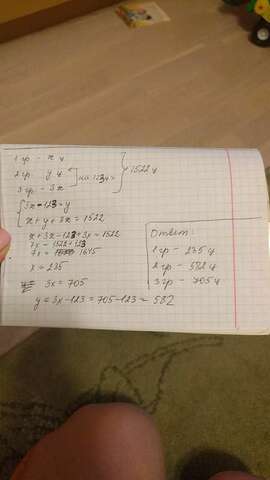 1 гр - x ч
2 гр. y ч
3 гр - 3x
на 123 ч
1522 ч
3x - 123 = y
x + y + 3x = 1522
x + 3x - 123 + 3x = 1522
7x = 1522 + 123
7x = 1645
x = 235
3x = 705
y = 3x - 123 = 705 - 123 = 582
Ответ:
1 гр - 235 ч
2 гр - 582 ч
3 гр - 705 ч